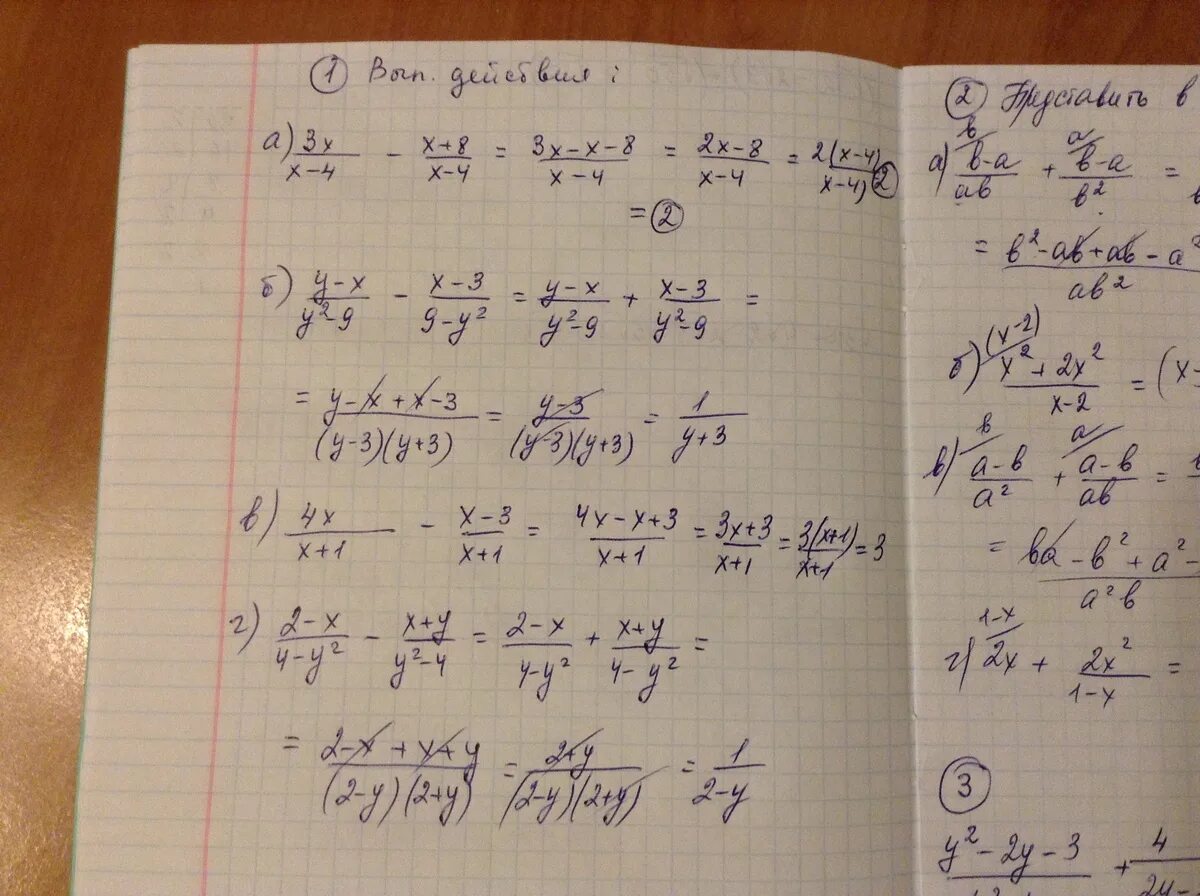 ① Вып. действия:
а) 3x/(x-4) - (x+8)/(x-4) = (3x-x-8)/(x-4) = (2x-8)/(x-4) = 2(x-4)/(x-4) ②
= ②
б) (y-x)/(y²-9) - (x-3)/(9-y²) = (y-x)/(y²-9) + (x-3)/(y²-9) =
= (y-x+x-3)/((y-3)(y+3)) = (y-3)/((y-3)(y+3)) = 1/(y+3)
в) 4x/(x+1) - (x-3)/(x+1) = (4x-x+3)/(x+1) = (3x+3)/(x+1) = 3(x+1)/(x+1) = 3
г) (2-x)/(4-y²) - (x+y)/(y²-4) = (2-x)/(4-y²) + (x+y)/(4-y²) =
= (2-x+x+y)/((2-y)(2+y)) = (2+y)/((2-y)(2+y)) = 1/(2-y)
② Представить в
в a
а) (в-a)/(aв) + (в-a)/(в²) =
= (в²-aв+aв-a²)/(aв²)
(x-2)
б) (x²+2x²)/(x-2) = (x-
в a
в) (a-в)/(a²) + (a-в)/(aв) =
= (вa-в²+a²-)/(a²в)
1-x
г) 2x + 2x²/(1-x) =
③
y²-2y-3 + 4
2y-